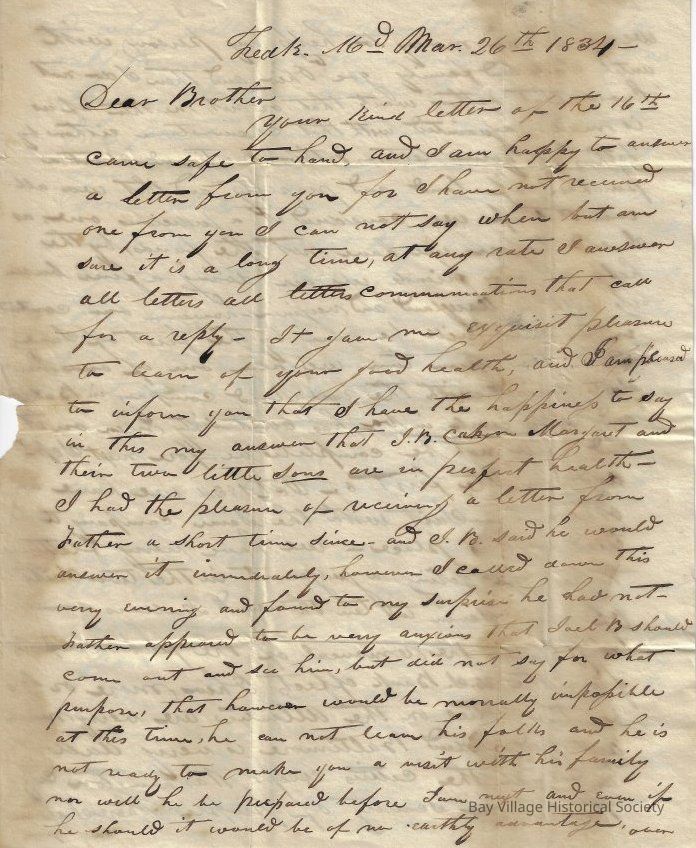 Fredk. Md Mar. 26th 1834 -
Dear Brother
your kind letter of the 16th
came safe to hand, and I am happy to answer
a letter from you for I have not received
one from you I can not say when but am
sure it is a long time, at any rate I answer
all letters all letters communications that call
for a reply - It gave me exquisit pleasure
to learn of your good health, and I am pleased
to inform you that I have the happiness to say
in this my answer that I. B. Margaret and
their two little sons are in perfect health -
I had the pleasure of receiving a letter from
Father a short time since - and I. B. said he would
answer it immediately, however I called down this
very evening and found to my surprise he had not -
Father appeared to be very anxious that Joel B should
come out and see him, but did not say for what
purpose, that however would be morally impossible
at this time, he can not leave his folks and he is
not ready to make you a visit with his family
nor will he be prepared before and even if
he should it would be of no earthly advantage, over
Bay Village Historical Society